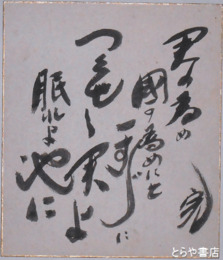 君の為め
國の為めにと
一すじに
つくせし君よ
眠れよ池に
完
とらや書店